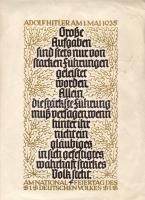 ADOLF HITLER AM 1. MAI 1935
Große
Aufgaben
sind stets nur von
starken Führungen
geleistet
worden.
Allein,
die stärkste Führung
muß versagen, wenn
hinter ihr
nicht ein
gläubiges
in sich gefestigtes
wahrhaft starkes
Volk steht.
AM NATIONALFEIERTAG DES
DEUTSCHEN VOLKES